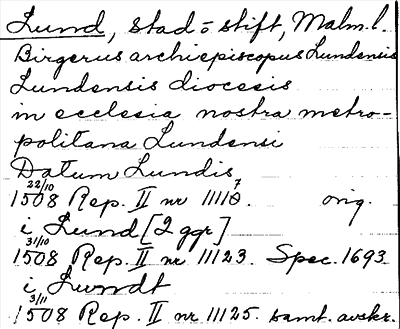 Lund, stad o stift, Malm. l.
Birgerus archiepiscopus Lundensis
Lundensis diocesis
in ecclesia nostra metro-
politana Lundensi
Datum Lundis
22/10 7
1508 Rep. II nr 11110. orig.
i Lund [2 ggr]
31/10
1508 Rep. II nr 11123. Spec. 1693.
i Lundt
3/11
1508 Rep. II nr 11125. samt. avskr.